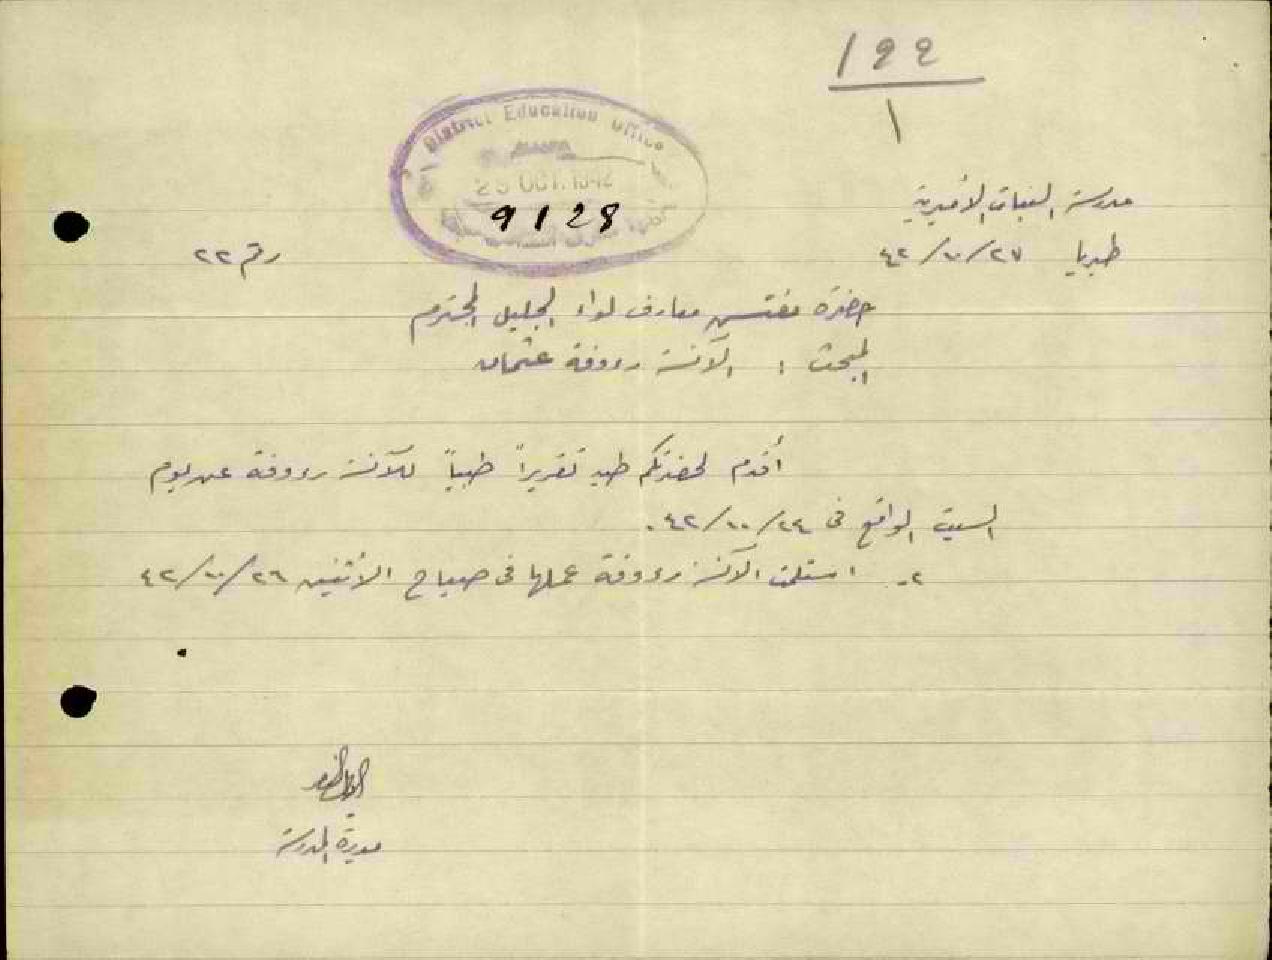 ١٩٩
١
District Education Office
29 OCT. 1942
9128
مدرسة البنات الأميرية
طبريا ٢٧/١٠/٤٢
رقم ٢٢
حضرة مفتش معارف لواء الجليل المحترم
المبحث : الآنسة رءوفة عثمان
أقدم لحضرتكم طيه تقريراً طبياً للآنسة رءوفة عن يوم
السبت الواقع فى ٢٤/١٠/٤٢.
٢- استلمت الآنسة رءوفة عملها فى صباح الأثنين ٢٦/١٠/٤٢
مديرة المدرسة